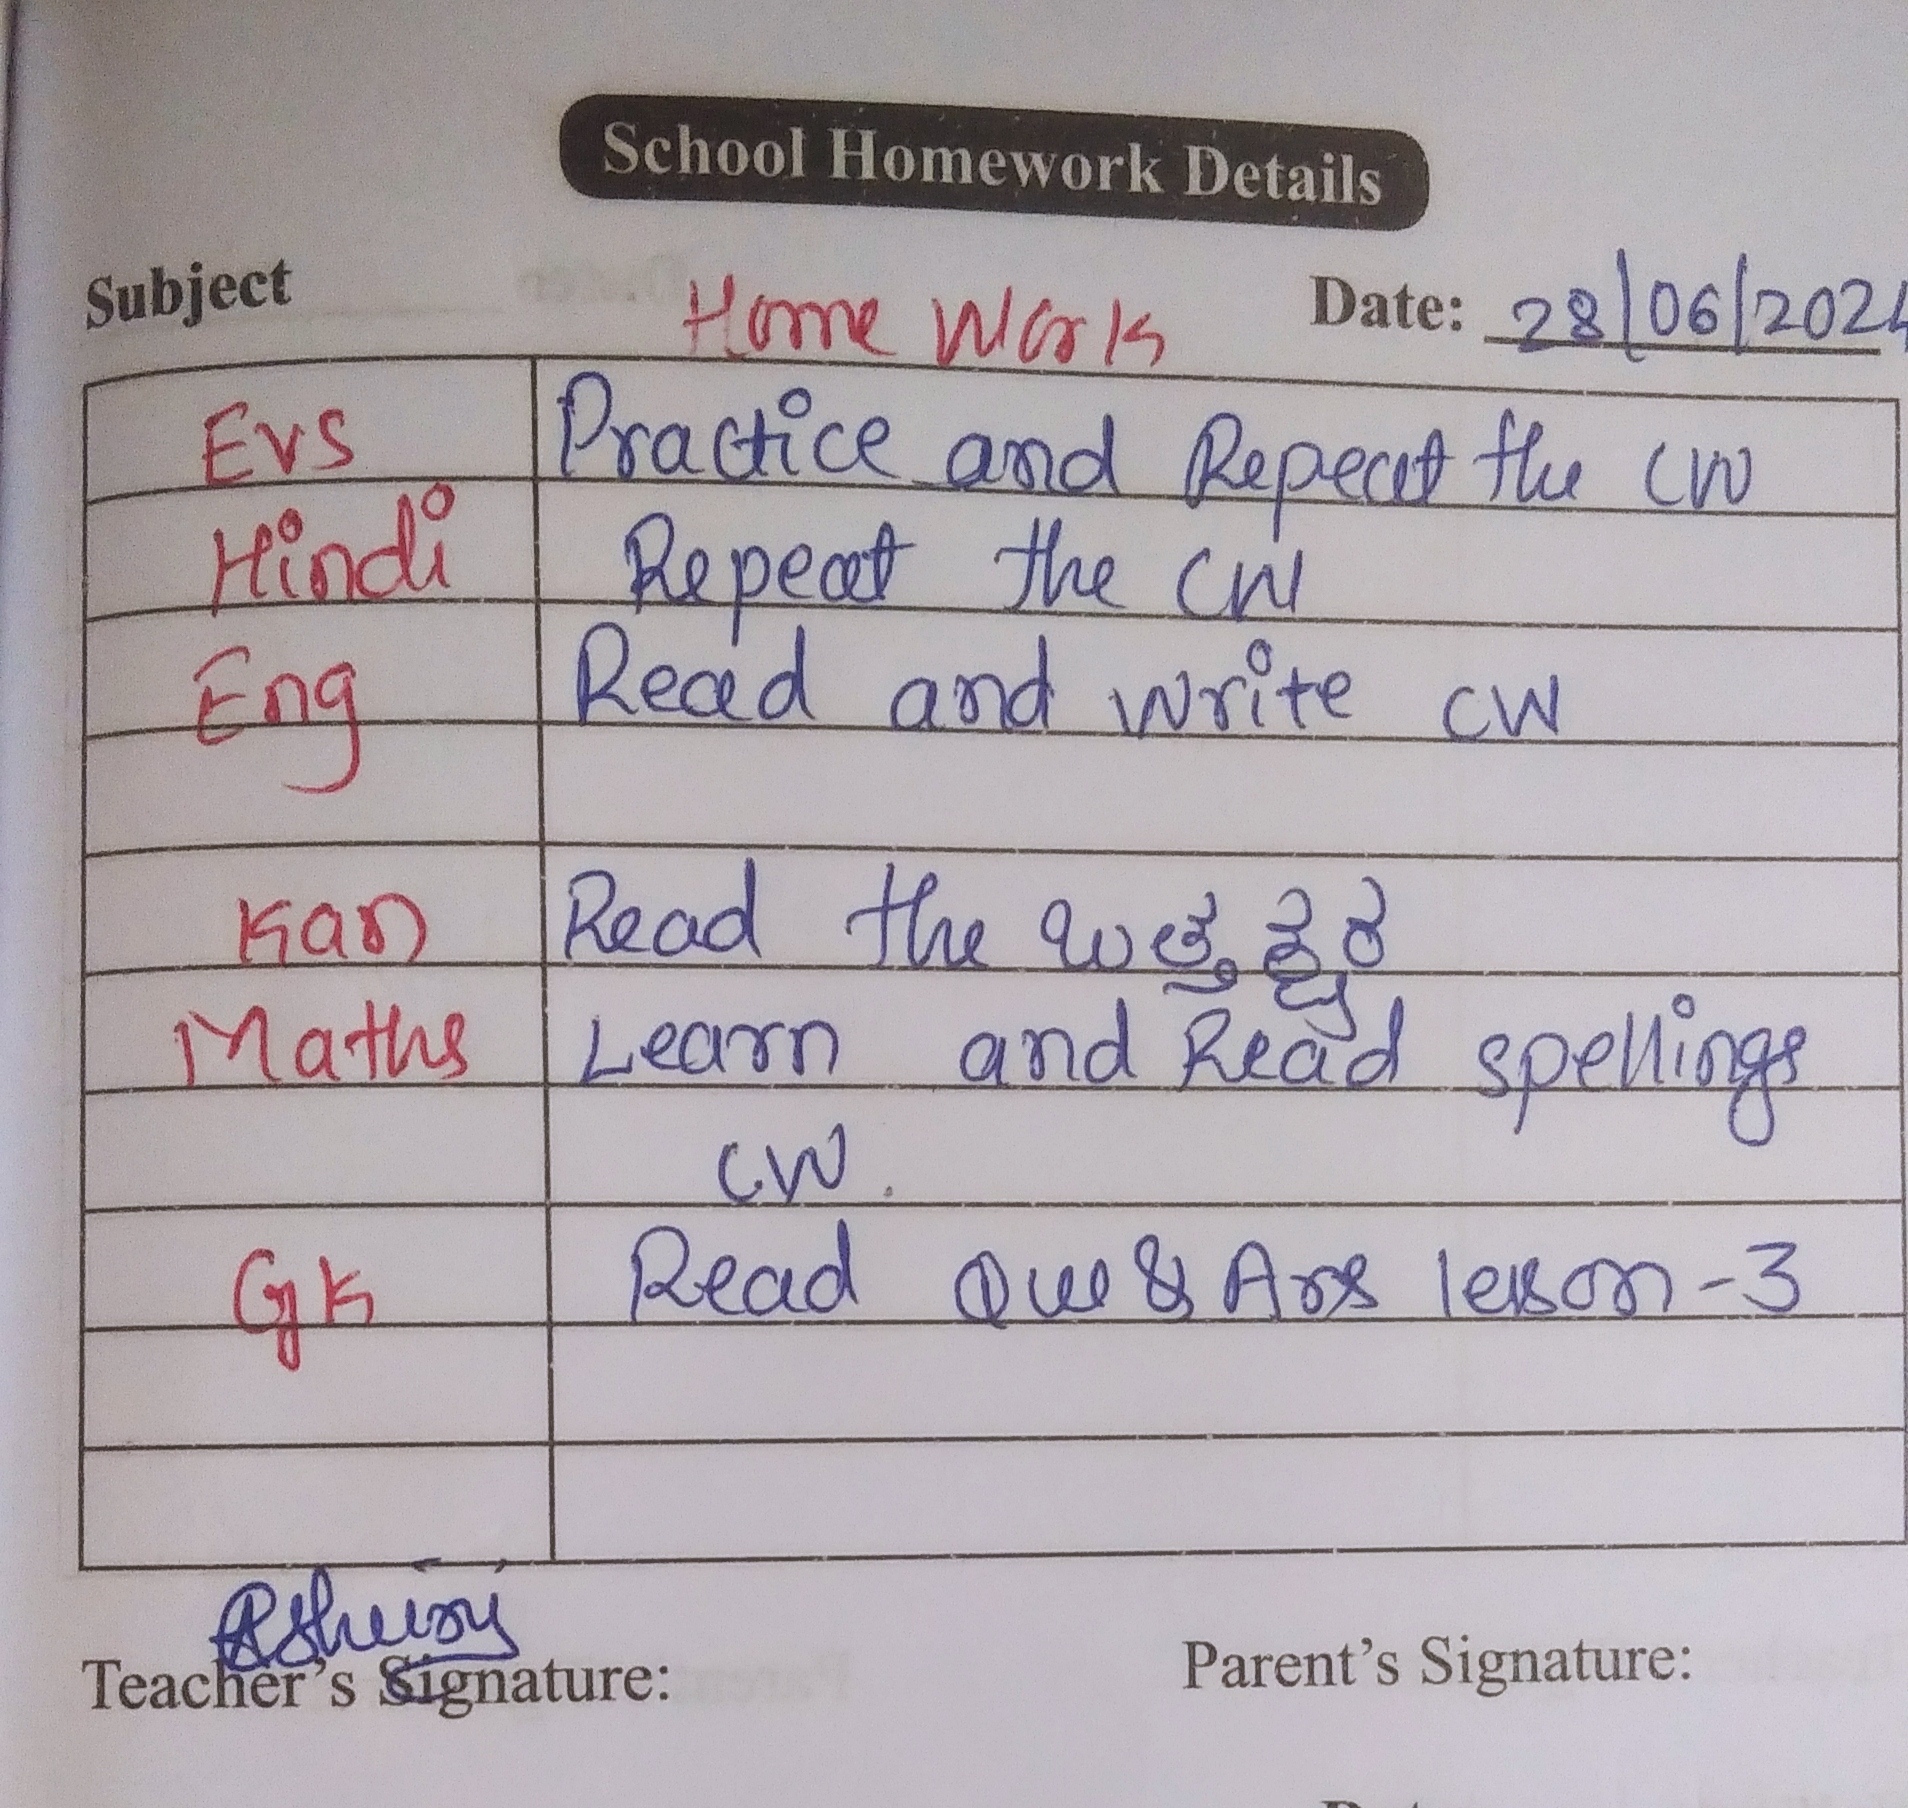 School Homework Details
Subject Home Work Date: 28/06/2024
Evs Practice and Repeat the CW
Hindi Repeat the CW
Eng Read and write CW
Kan Read the
Maths Learn and Read spellings
CW.
GK Read Que & Ans lesson-3
Teacher's Signature: Parent's Signature: